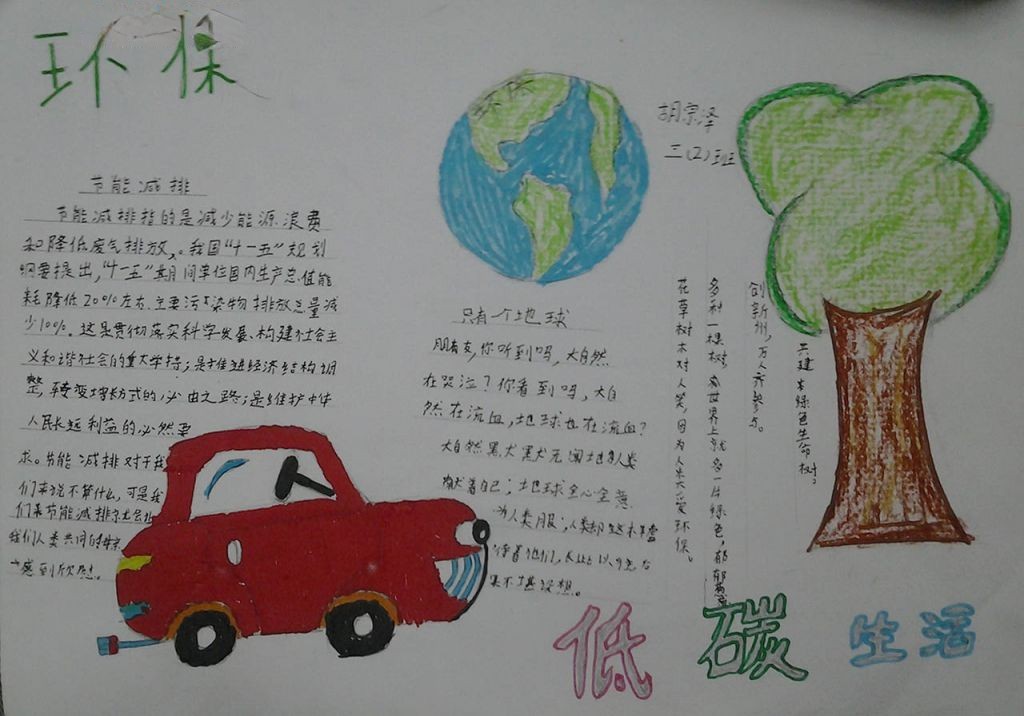 环保
节能减排
节能减排指的是减少能源浪费
和降低废气排放。我国“十一五”规划
纲要提出,“十一五”期间单位国内生产总值能
耗降低20%左右、主要污染物排放总量减
少10%。这是贯彻落实科学发展、构建社会主
义和谐社会的重大举措;是推进经济结构调
整,转变增长方式的必由之路;是维护中华
人民长远利益的必然要
求。节能减排对于我
们来说不算什么,可是我
我们人类共同的
感到欣慰。
胡宗泽
三(2)班
只有一个地球
朋友,你听到吗,大自然
在哭泣?你看到吗,大自
然在流血,地球也在流血?
大自然默默无闻地为人类
献着自己;地球全心全意
为人类服,人类却
果不堪设想。
创新州,万人齐参与。
共建木绿色生命树。
多种一棵树,为世界上就多一片绿色,郁郁葱
花草树木对人笑,因为人来爱环保。
低碳生活